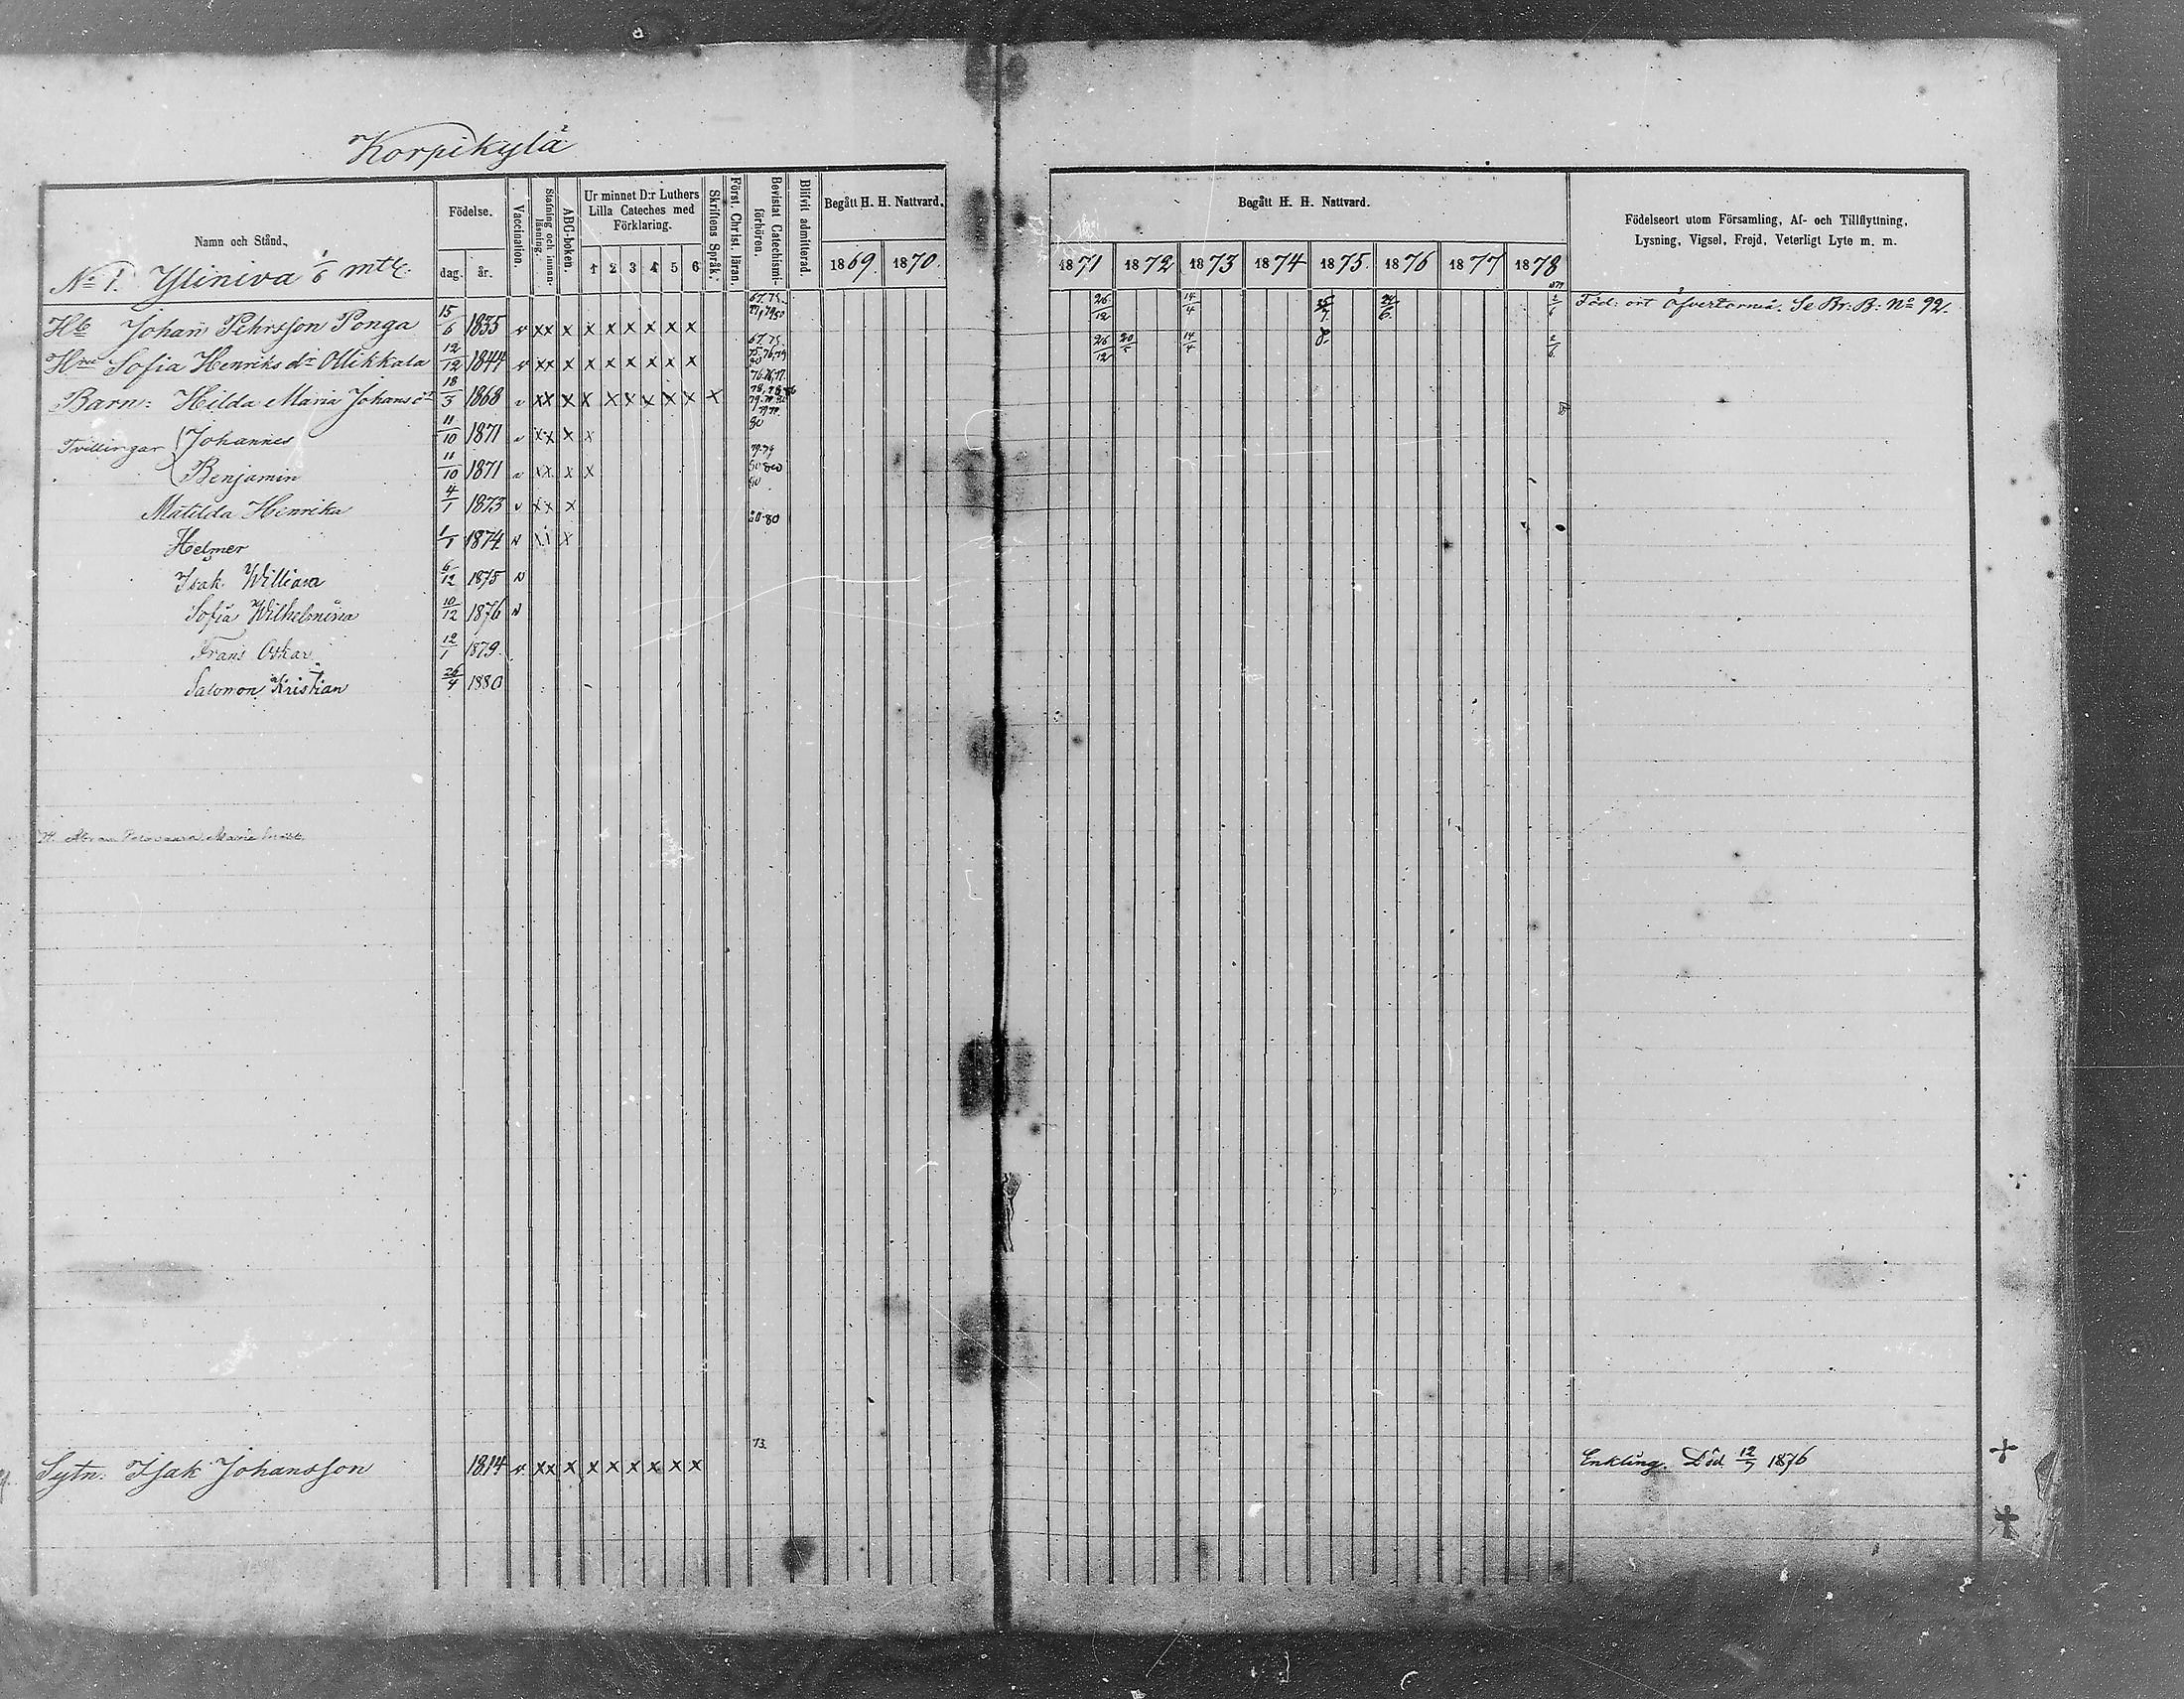 Korpikylä
Namn och Stånd.
Födelse.
dag. år.
Vaccination.
Stafning och innanläsning.
ABC-boken.
Ur minnet D:r Luthers Lilla Cateches med Förklaring.
1 2 3 4 5 6
Skriftens Språk.
Först. Christ. läran.
Bevistat Catechismiförhören.
Blifvit admitterad.
Begått H. H. Nattvard.
1869. 1870.
Begått H. H. Nattvard.
1871 1872 1873 1874 1875. 1876 1877 1878
Födelseort utom Församling, Af- och Tillflyttning,
Lysning, Vigsel, Frejd, Veterligt Lyte m. m.
No 1. Yliniva 1/6 mtl.
Hb Johan Pehrsson Ponga 15/6 1835 v xx x x x x x x x 26/12 14/4 24/6 2/6 Föd: ort Öfvertorneå. Se Br: B: No 92.
Hru Sofia Henriks dr Ollikkala 12/12 1844 v xx x x x x x x x 26/12 20/5 14/4 2/6
Barn: Hilda Maria Johans dr 18/5 1868 v xx x x x x x x x x
Tvillingar Johannes 11/10 1871 v xx x x 80
Benjamin 11/10 1871 v xx x x
Matilda Henrika 4/1 1873 v xx x
Helmer 1/1 1874 v xx x 80
Isak William 6/12 1875 v
Sofia Wilhelmina 10/12 1876 v
Frans Oskar 12/1 1879.
Salomon Kristian 26/4 1880
Sytn: Isak Johansson 1814 v xx x x x x x x x 73. Enkling. Död 12/7 1876